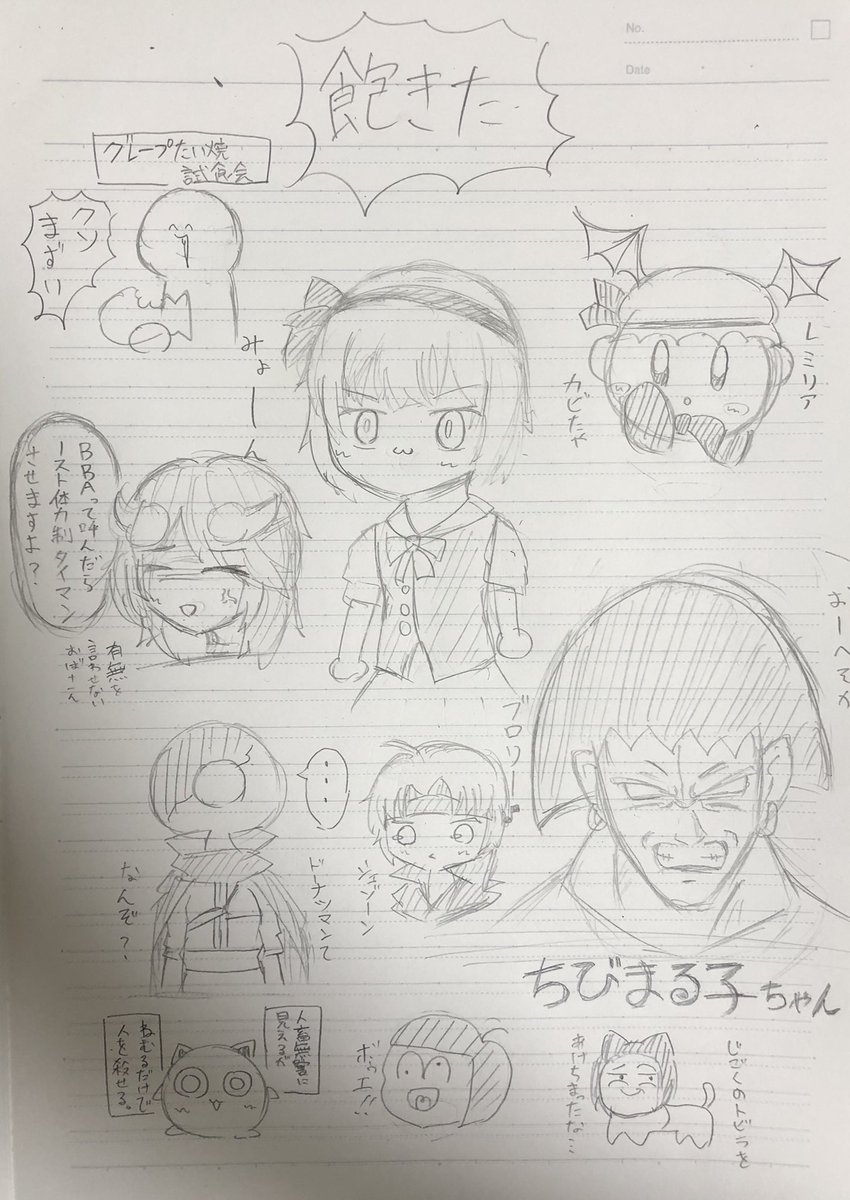 No.
Date
飽きた
グレープたい焼
試食会
クソ
まずい
みょーん
レミリア
カビだヤ
BBAって呼んだら
ースト体力制タイマン
させますよ?
有無を
言わせない
おばさん
おーへそか
ブロリー
・・・
ドーナツマンて
なんぞ?
シェゾーン
ちびまる子ちゃん
人畜無害に
見えるが
ねむるだけで
人を殺せる。
ボゥエ!!
じごくのトビラを
あけちまったな…